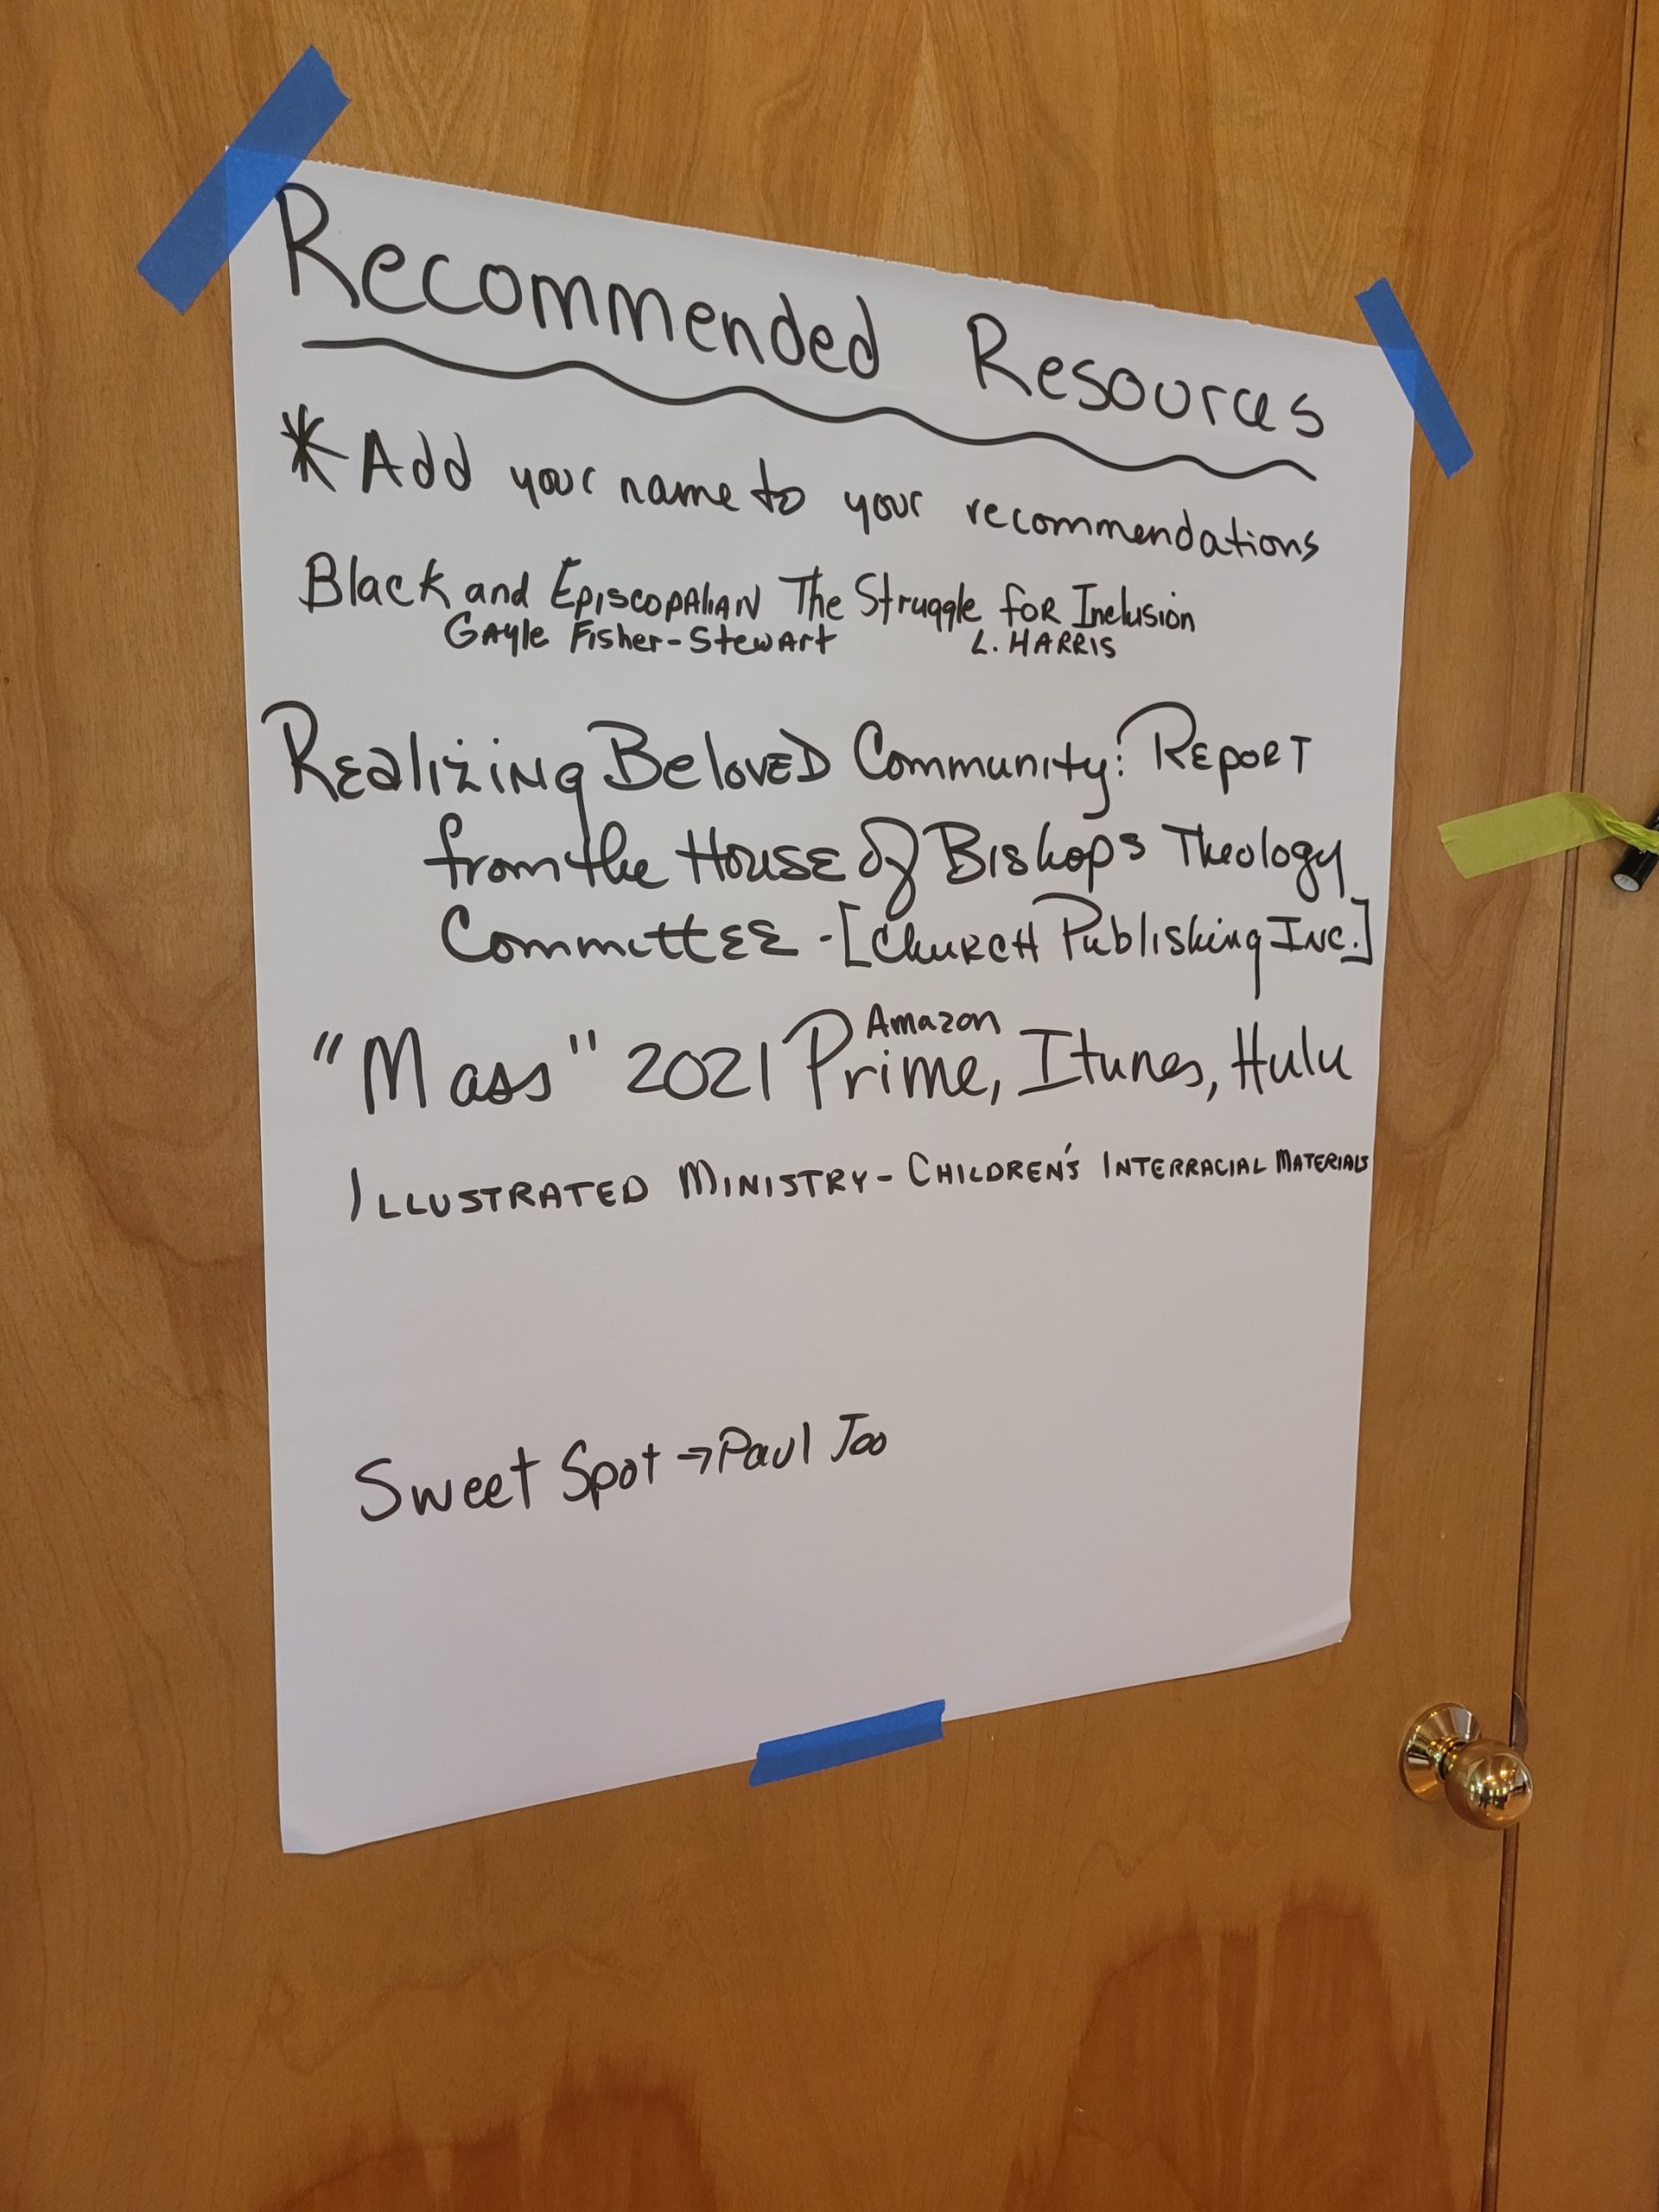 Recommended Resources
* Add your name to your recommendations
Black and Episcopalian The Struggle for Inclusion
Gayle Fisher-Stewart L. HARRIS
Realizing Beloved Community: Report
from the House of Bishops Theology
Committee - [Church Publishing Inc.]
"Mass" 2021 Amazon Prime, Itunes, Hulu
ILLUSTRATED MINISTRY - CHILDREN'S INTERRACIAL MATERIALS
Sweet Spot → Paul Joo